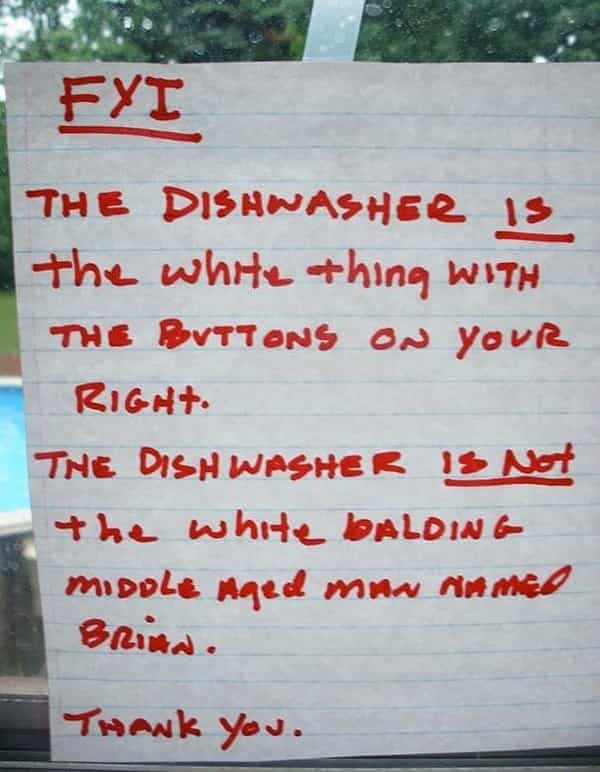 FYI
THE DISHWASHER IS
the white thing WITH
THE BUTTONS ON YOUR
RIGHt.
THE DISHWASHER IS Not
the white BALDING
MIDDLE Aged MAN NAMED
BRIAN.
THANK YOU.